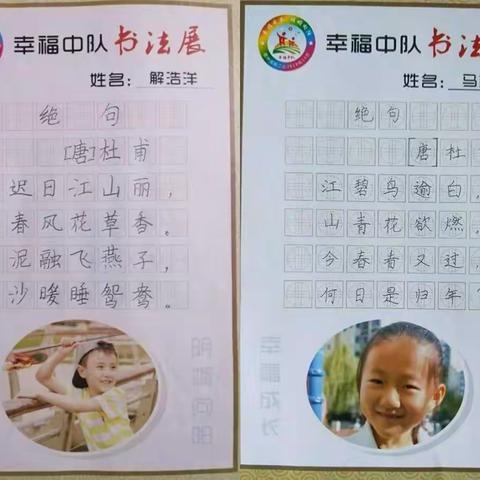 幸福中队书法展
姓名：解浩洋
绝句
[唐]杜甫
迟日江山丽，
春风花草香。
泥融飞燕子，
沙暖睡鸳鸯。
幸福中队书法
姓名：马
绝句
[唐]杜
江碧鸟逾白，
山青花欲燃，
今春看又过，
何日是归年？